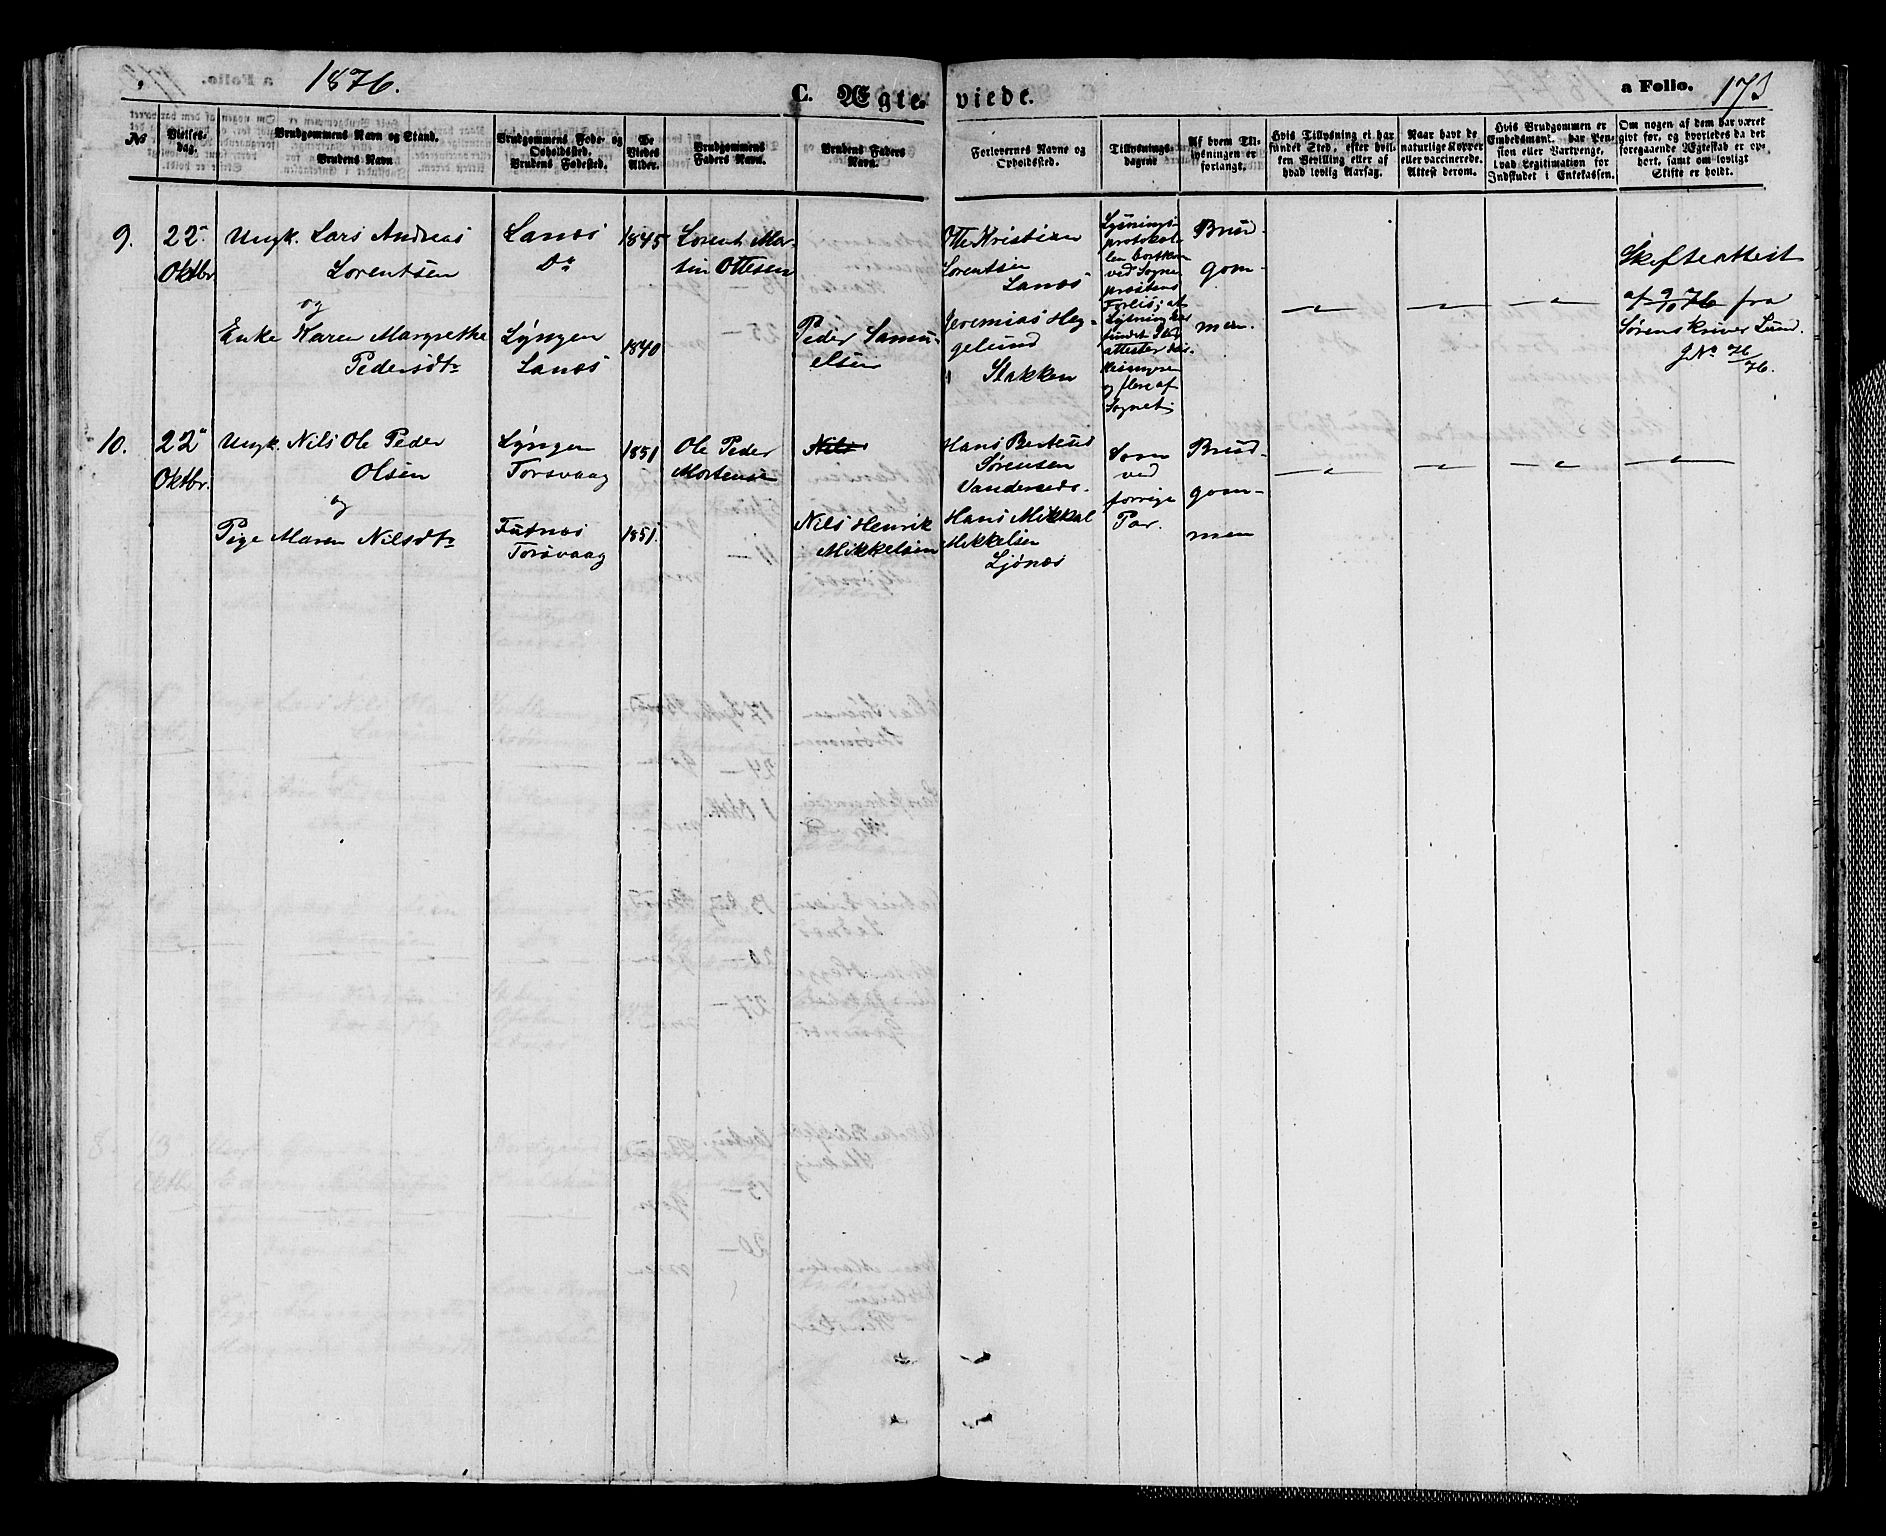 1876.
C. Ægteviede.
a Folio. 173
No
Vielses-
dag.
Brudgommens Navn og Stand.
Brudens Navn
Brudgommens Føde- og
Opholdssted.
Brudens Fødested.
De
Viedes
Alder.
Brudgommens
Faders Navn.
Brudens Faders
Navn.
Forlovernes Navne og
Opholdssted.
Tillysnings-
dagene
Af hvem Til-
lysningen er
forlangt.
Hvis Tillysning ei har
fundet Sted, efter hvil-
ken Bevilling eller af
hvad lovlig Aarsag.
Naar havt de
naturlige Kopper
eller vaccinerede.
Attest derom.
Hvis Brudgommen er
Embedsmand, har Pen-
sion eller Vartpenge,
hvad Legitimation for
Indskudet i Enkekassen.
Om nogen af dem har været
givt før, og hvorledes da det
foregaaende Ægteskab er op-
hørt, samt om lovligt
Skifte er holdt.
9.
22
Oktbr
Ungk. Lars Andreas
Lorentsen
og
Enke Karen Margrethe
Pedersdtr
Lanæs
Do
Lyngen
Lanæs
1845
1840
Lorents Mar-
tin Ottesen
Peder Samu-
elsen
Otte Kristian
Lorentsen
Lanæs
Jeremias Heg-
gelund
Stakken
Lysnings
protokol-
len bortkom
ved Sogne
præstens
Forlis; at
Lysning har
fundet Sted
attester
og flere af
Sognet
Brud-
gom-
men.
Skifteattest
af 9/10 76 fra
Sørenskriver Lund.
J No 76/76.
10.
22
Oktbr.
Ungk. Nils Ole Peder
Olsen
og
Pige Maren Nilsdtr
Lyngen
Torsvaag
Futnæs
Torsvaag
1851
1851.
Ole Peder
Mortensen
Nils
Nils Henrik
Mikkelsen
Hans Berteus
Sørensen
Vanderseds.
Hans Mikkal
Mikkelsen
Ljønæs
Som
ved
forrige
Par.
Brud-
gom-
men